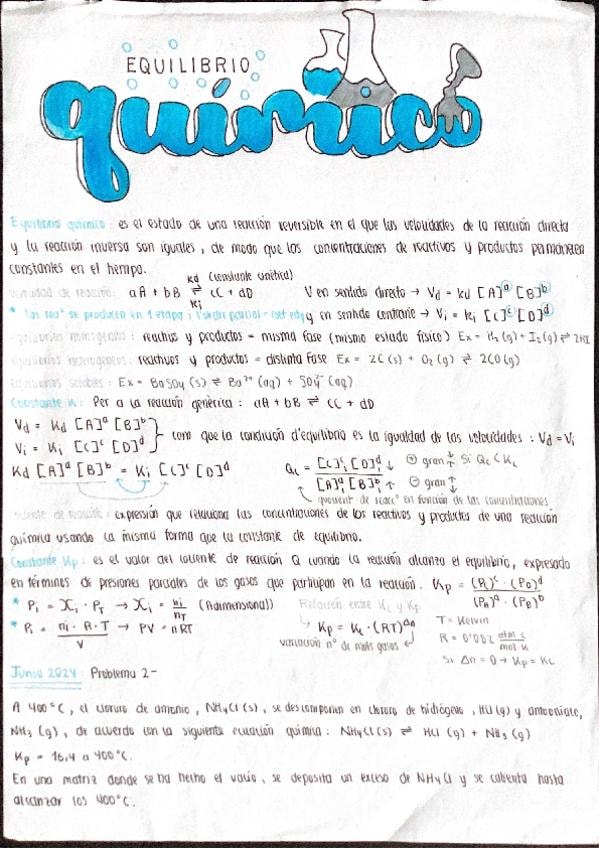 EQUILIBRIO
químico
Equilibrio químico: es el estado de una reacción reversible en el que las velocidades de la reacción directa
y la reacción inversa son iguales, de modo que las concentraciones de reactivos y productos permanecen
constantes en el tiempo.
kd (constante cinética)
Velocidad de reacción: aA + bB ⇌ cC + dD V en sentido directo → Vd = kd [A]ᵃ [B]ᵇ
ki
* Las reacˢ se producen en 1 etapa: y en sentido contrario → Vi = ki [C]ᶜ [D]ᵈ
equilibrios homogéneos: reactivos y productos = misma fase (mismo estado físico) Ex = H₂(g) + I₂(g) ⇌ 2HI
equilibrios heterogéneos: reactivos y productos = distinta fase Ex = 2C(s) + O₂(g) ⇌ 2CO(g)
solubles: Ex = BaSO₄(s) ⇌ Ba²⁺(aq) + SO₄²⁻(aq)
Constante K: Per a la reacción genérica: aA + bB ⇌ cC + dD
Vd = Kd [A]ᵃ [B]ᵇ
Vi = Ki [C]ᶜ [D]ᵈ
com que la condición d'equilibrio es la igualdad de las velocidades: Vd = Vi
Kd [A]ᵃ [B]ᵇ = Ki [C]ᶜ [D]ᵈ
Qc = [C]ᶜi [D]ᵈi ↓ / [A]ᵃi [B]ᵇi ↑ ⊕ gran ↑ Si Qc < Kc
⊖ gran ↑
quocient de reaccº en función de las concentraciones
cociente de reacción: expresión que relaciona las concentraciones de los reactivos y productos de una reacción
química usando la misma forma que la constante de equilibrio.
Constante Kp: es el valor del cociente de reacción Q cuando la reacción alcanza el equilibrio, expresado
en términos de presiones parciales de los gases que participan en la reacción. Kp = (Pc)ᶜ · (PD)ᵈ / (PA)ᵃ · (PB)ᵇ
* Pi = Xi · PT → Xi = ni / nT (Adimensional)
* Pi = ni · R · T / V → PV = nRT
Relación entre Kc y Kp
Kp = Kc · (RT)^Δn
variación nº de mols gases
T = Kelvin
R = 0'082 atm·L / mol·K
Si Δn = 0 → Kp = Kc
Junio 2024: Problema 2-
A 400 °C, el cloruro de amonio, NH₄Cl(s), se descomponen en cloruro de hidrógeno, HCl(g) y amoníaco,
NH₃(g), de acuerdo con la siguiente ecuación química: NH₄Cl(s) ⇌ HCl(g) + NH₃(g)
Kp = 16,4 a 400°C.
En una matriz donde se ha hecho el vacío, se deposita un exceso de NH₄Cl y se calienta hasta
alcanzar los 400°C.